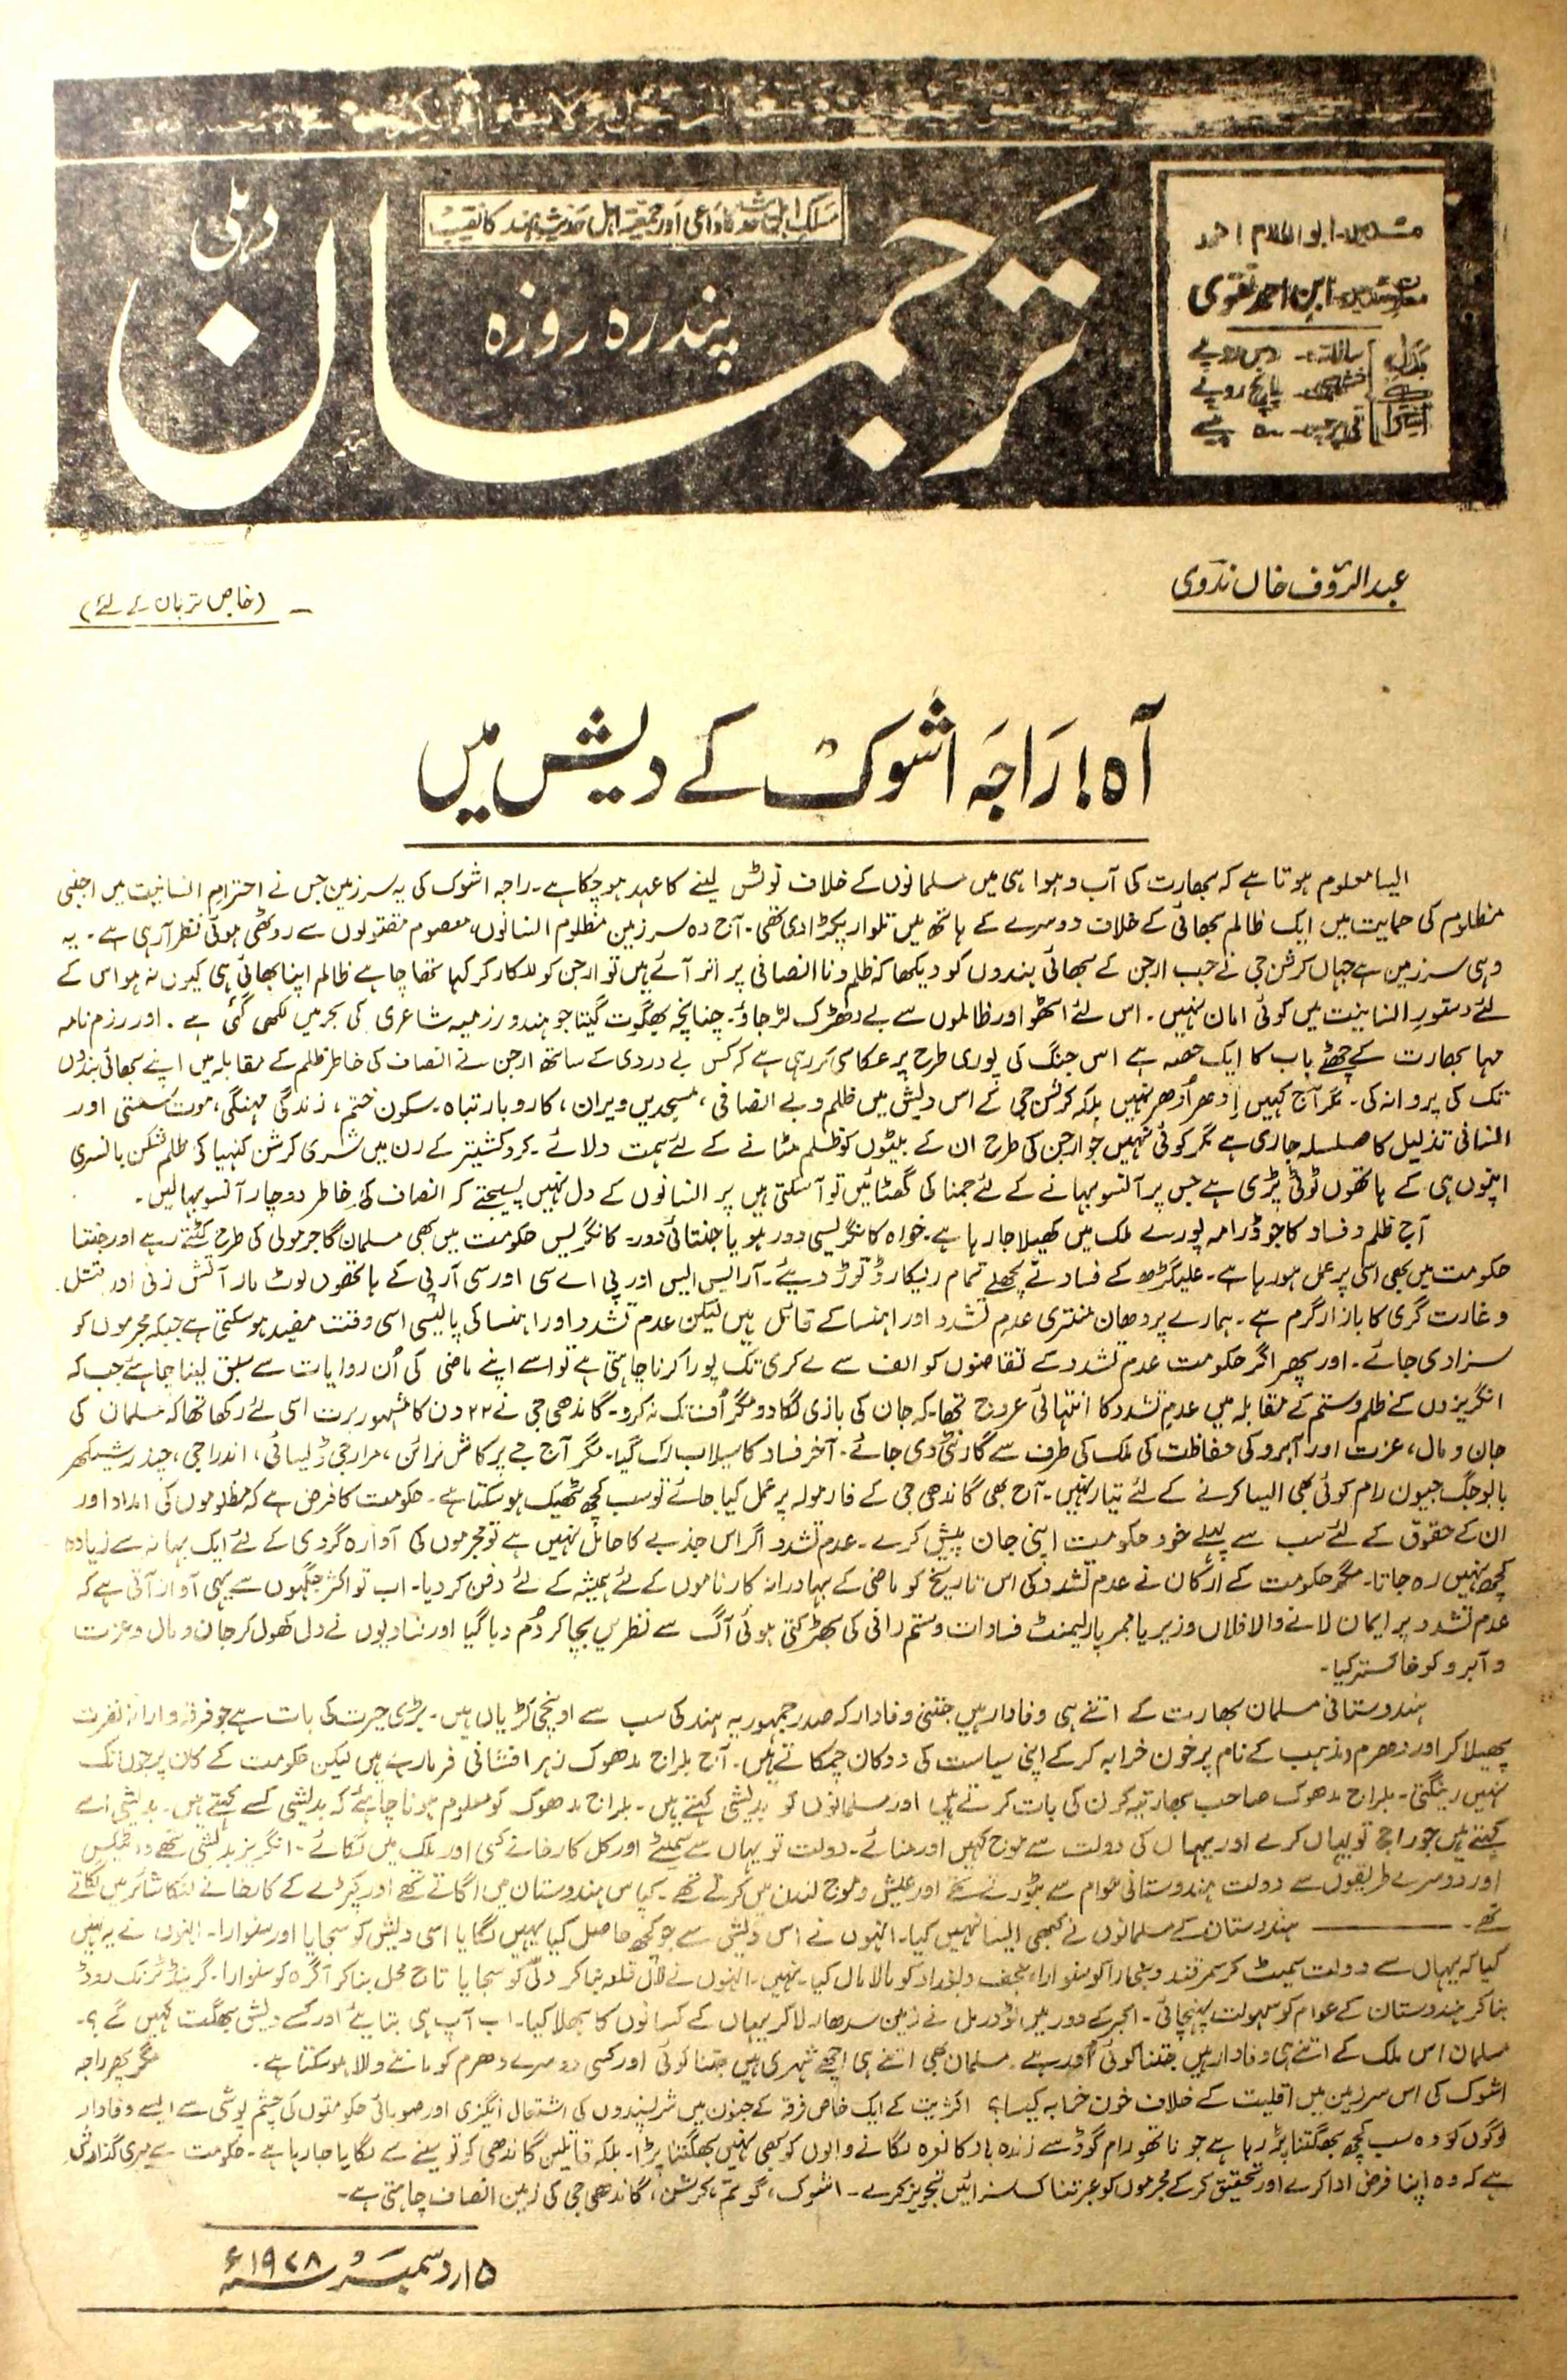 مسلک اہلحدیث کا داعی اور جمعیۃ اہل حدیث ہند کا نقیب
دہلی
ترجمان
پندرہ روزہ
مدیر ابوالکلام احمد
معاون مدیر ابن احمد نقوی
سالانہ دس روپے
ششماہی پانچ روپے
فی پرچہ ۵۰ پیسے
عبدالرؤف خاں ندوی
(خاص ترجمان کے لئے)
آہ! راجہ اشوک کے دیش میں
ایسا معلوم ہوتا ہے کہ بھارت کی آب و ہوا ہی میں مسلمانوں کے خلاف نوٹس لینے کا عہد ہو چکا ہے۔ راجہ اشوک کی یہ سرزمین جس نے احترام انسانیت میں اجنبی
مظلوم کی حمایت میں ایک ظالم بھائی کے خلاف دوسرے کے ہاتھ میں تلوار پکڑا دی تھی۔ آج وہ سرزمین مظلوم انسانوں، معصوم مقتولوں سے روٹھی ہوئی نظر آرہی ہے۔ یہ
وہی سرزمین ہے جہاں کرشن جی نے جب ارجن کے بھائی بندوں کو دیکھا کہ ظلم و ناانصافی پر اتر آئے ہیں تو ارجن کو للکار کر کہا تھا چاہے ظالم اپنا بھائی ہی کیوں نہ ہو اس کے
لئے دستور انسانیت میں کوئی امان نہیں۔ اس لئے اٹھو اور ظالموں سے بے دھڑک لڑ جاؤ۔ چنانچہ بھگوت گیتا جو ہندو رزمیہ شاعری کی بحر میں لکھی گئی ہے۔ اور رزم نامہ
مہا بھارت کے چھٹے باب کا ایک حصہ ہے اس جنگ کی پوری طرح پر عکاسی کر رہی ہے کہ کس بے دردی کے ساتھ ارجن نے انصاف کی خاطر ظلم کے مقابلہ میں اپنے بھائی بندوں
تک کی پروا نہ کی۔ مگر آج کہیں اِدھر اُدھر نہیں بلکہ کرشن جی کے اس دیش میں ظلم و بے انصافی، مسجدیں ویران، کاروبار تباہ۔ سکون ختم، زندگی مہنگی، موت سستی اور
انسانی تذلیل کا سلسلہ جاری ہے مگر کوئی نہیں جو ارجن کی طرح ان کے بیٹوں کو ظلم مٹانے کے لئے ہمت دلائے۔ کروکشیتر کے رن میں شری کرشن کنہیا کی ظلم شکن بانسری
اپنوں ہی کے ہاتھوں ٹوٹی پڑی ہے جس پر آنسو بہانے کے لئے جمنا کی گھٹائیں تو آسکتی ہیں پر انسانوں کے دل نہیں پسیجتے کہ انصاف کی خاطر دو چار آنسو بہالیں۔
آج ظلم و فساد کا جو ڈرامہ پورے ملک میں کھیلا جا رہا ہے۔ خواہ کانگریسی دور ہو یا جنتائی دور۔ کانگریس حکومت میں بھی مسلمان گاجر مولی کی طرح کٹتے رہے اور جنتا
حکومت میں بھی اسی پر عمل ہو رہا ہے۔ علیگڑھ کے فساد نے پچھلے تمام ریکارڈ توڑ دیئے۔ آر ایس ایس اور پی اے سی اور سی آر پی کے ہاتھوں لوٹ مار آتش زنی اور قتل
و غارت گری کا بازار گرم ہے۔ ہمارے پردھان منتری عدم تشدد اور اہنسا کے قائل ہیں لیکن عدم تشدد اور اہنسا کی پالیسی اسی وقت مفید ہو سکتی ہے جبکہ مجرموں کو
سزا دی جائے۔ اور پھر اگر حکومت عدم تشدد کے تقاضوں کو الف سے لے کر ی تک پورا کرنا چاہتی ہے تو اسے اپنے ماضی کی اُن روایات سے سبق لینا چاہئے جب کہ
انگریزوں کے ظلم و ستم کے مقابلہ میں عدم تشدد کا انتہائی عروج تھا۔ کہ جان کی بازی لگا دو مگر اُف تک نہ کرو۔ گاندھی جی نے ۲۲ دن کا مشہور برت اسی لئے رکھا تھا کہ مسلمان کی
جان و مال، عزت اور آبرو کی حفاظت کی ملک کی طرف سے گارنٹی دی جائے۔ آخر فساد کا سیلاب رک گیا۔ مگر آج جے پرکاش نرائن، مرارجی ڈیسائی، اندرا جی، چندر شیکھر
بابو جگ جیون رام کوئی بھی ایسا کرنے کے لئے تیار نہیں۔ آج بھی گاندھی جی کے فارمولہ پر عمل کیا جائے تو سب کچھ ٹھیک ہو سکتا ہے۔ حکومت کا فرض ہے کہ مظلوموں کی امداد اور
ان کے حقوق کے لئے سب سے پہلے خود حکومت اپنی جان پیش کرے۔ عدم تشدد اگر اس جذبے کا حامل نہیں ہے تو مجرموں کی آوارہ گردی کے لئے ایک بہانہ سے زیادہ
کچھ نہیں رہ جاتا۔ مگر حکومت کے ارکان نے عدم تشدد کی اس تاریخ کو ماضی کے بہادرانہ کارناموں کے لئے ہمیشہ کے لئے دفن کر دیا۔ اب تو اکثر جگہوں سے یہی آواز آتی ہے کہ
عدم تشدد پر ایمان لانے والا فلاں وزیر یا ممبر پارلیمنٹ فسادات و ستم رانی کی بھڑکتی ہوئی آگ سے نظریں بچا کر دُم دبا گیا اور فسادیوں نے دل کھول کر جان و مال و عزت
و آبرو کو خاکستر کیا۔
ہندوستانی مسلمان بھارت کے اتنے ہی وفادار ہیں جتنی وفادار کہ صدر جمہوریہ ہند کی سب سے اونچی کڑیاں ہیں۔ بڑی حیرت کی بات ہے جو فرقہ وارانہ نفرت
پھیلا کر اور دھرم و مذہب کے نام پر خون خرابہ کر کے اپنی سیاست کی دوکان چمکاتے ہیں۔ آج بلراج مدھوک زہر افشانی فرما رہے ہیں لیکن حکومت کے کان پر جوں تک
نہیں رینگتی۔ بلراج مدھوک صاحب بھارتیہ کرن کی بات کرتے ہیں اور مسلمانوں کو بدیشی کہتے ہیں۔ بلراج مدھوک کو معلوم ہونا چاہئے کہ بدیشی کسے کہتے ہیں۔ بدیشی اسے
کہتے ہیں جو راج تو یہاں کرے اور یہاں کی دولت سے موج کہیں اور منائے۔ دولت تو یہاں سے سمیٹے اور کل کارخانے کسی اور ملک میں لگائے۔ انگریز بدیشی تھے وہ ٹیکس
اور دوسرے طریقوں سے دولت ہندوستانی عوام سے بٹورتے تھے اور عیش و موج لندن میں کرتے تھے۔ کپاس ہندوستان میں اگاتے تھے اور کپڑے کے کارخانے لنکا شائر میں لگاتے
تھے۔ ہندوستان کے مسلمانوں نے کبھی ایسا نہیں کیا۔ انہوں نے اس دیش سے جو کچھ حاصل کیا یہیں لگایا اسی دیش کو سجایا اور سنوارا۔ انہوں نے یہ نہیں
کیا کہ یہاں سے دولت سمیٹ کر سمرقند و بخارا کو سنوارا، نجف و بغداد کو مالا مال کیا۔ نہیں۔ انہوں نے لال قلعہ بنا کر دلّی کو سجایا تاج محل بنا کر آگرہ کو سنوارا۔ گرینڈ ٹرنک روڈ
بنا کر ہندوستان کے عوام کو سہولت پہنچائی۔ اکبر کے دور میں ٹوڈرمل نے زمین سدھار لا کر یہاں کے کسانوں کا بھلا کیا۔ اب آپ ہی بتایئے اور کسے دیش بھگت کہیں گے؟۔
مسلمان اس ملک کے اتنے ہی وفادار ہیں جتنا کوئی اور ہے۔ مسلمان بھی اتنے ہی اچھے شہری ہیں جتنا کوئی اور کسی دوسرے دھرم کو ماننے والا ہو سکتا ہے۔ مگر پھر راجہ
اشوک کی اس سرزمین میں اقلیت کے خلاف خون خرابہ کیسا؟ اکثریت کے ایک خاص فرقہ کے جنون میں شرپسندوں کی اشتعال انگیزی اور صوبائی حکومتوں کی چشم پوشی سے ایسے وفادار
لوگوں کو وہ سب کچھ بھگتنا پڑ رہا ہے جو ناتھو رام گوڈسے زندہ باد کا نعرہ لگانے والوں کو کبھی نہیں بھگتنا پڑا۔ بلکہ قاتلین گاندھی کو تو سینے سے لگایا جا رہا ہے۔ حکومت سے میری گذارش
ہے کہ وہ اپنا فرض ادا کرے اور تحقیق کر کے مجرموں کو عبرتناک سزائیں تجویز کرے۔ اشوک، گوتم، کرشن، گاندھی جی کی زمین انصاف چاہتی ہے۔
۱۵ دسمبر ۱۹۷۸ء